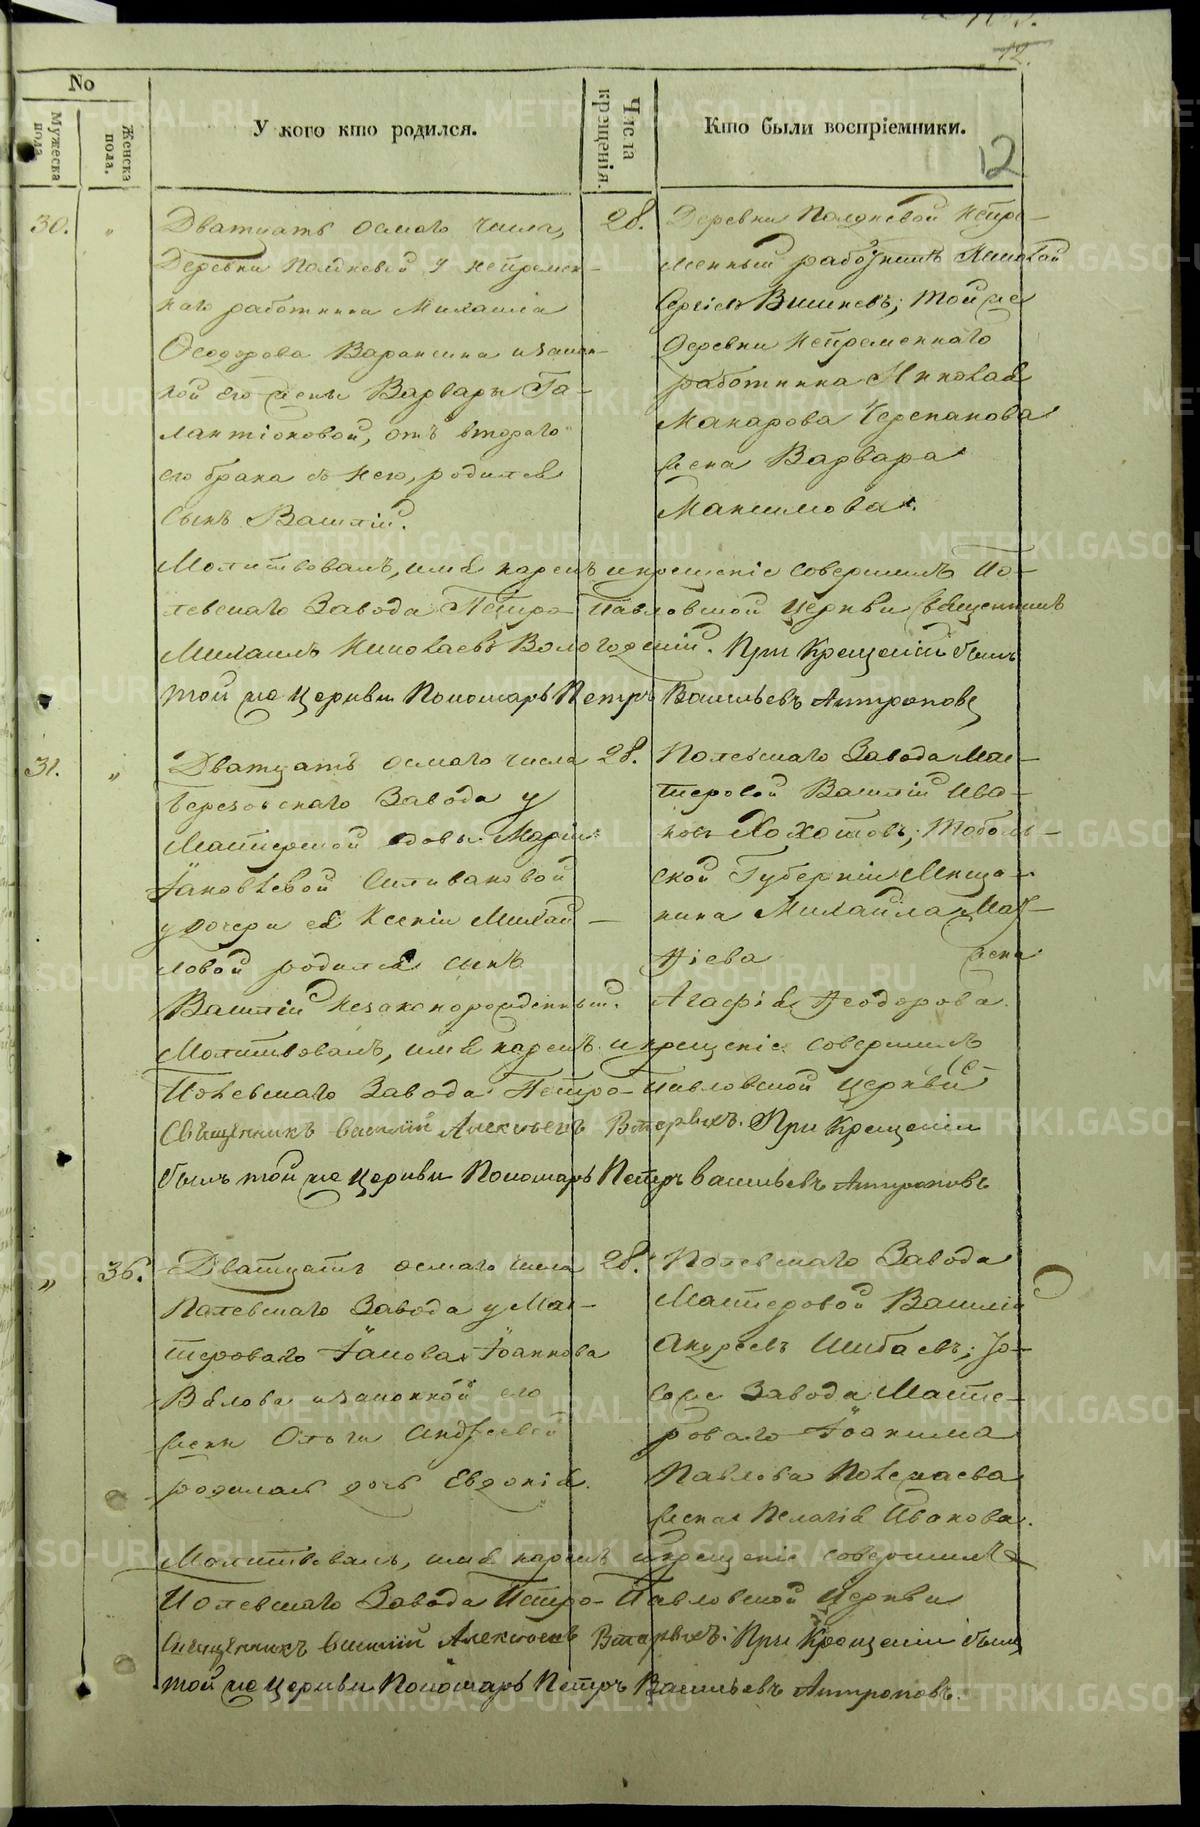 12.
12
No
Мужеска пола.
Женска пола.
У кого кто родился.
Числа крещенія.
Кто были воспріемники.
30.
"
Дватцать осмаго числа,
Деревни Полдневой у непремен-
наго работника Михаила
Ѳеодорова Вараксина изакон-
ной его жены Варвары Га-
лактіоновой, отъ втораго
его брака съ нею, родился
сынъ Василій.
28.
Деревни Полдневой непре-
менный работникъ Николай
Сергіевъ Вишневъ; той же
деревни непременнаго
работника Николая
Макарова Черепанова
жена Варвара
Максимова.
Молитвовалъ, имя нарекъ и крещеніе совершилъ По-
левскаго Завода Петро-Павловской Церкви Священникъ
Михаилъ Николаевъ Вологодскій. При Крещеніи былъ
той же Церкви Пономарь Петръ Васильевъ Антроповъ
31.
"
Дватцать осмаго числа
Березовскаго Завода у
Мастерской вдовы Маріи
Іаковлевой Силивановой
у дочери ея Ксеніи Михай-
ловой родился сынъ
Василій незаконорожденный.
28.
Полевскаго Завода Мас-
теровой Василій Ива-
новъ Хохотовъ; Тоболь-
ской Губерніи Меща-
нина Михаила Мат-
ѳіева жена
Агафія Ѳеодорова.
Молитвовалъ, имя нарекъ и крещеніе совершилъ
Полевскаго Завода Петро-Павловской церкви
Священникъ Василій Алексѣевъ Вторыхъ. При Крещеніи
былъ той же Церкви Пономарь Петръ Васильевъ Антроповъ
"
36.
Дватцать осмаго числа
Полевскаго Завода у Мас-
тероваго Іакова Іоаннова
Бѣлова изаконной его
жены Ольги Андреевой
родилась дочь Евдокія.
28.
Полевскаго Завода
Мастеровой Василій
Андреевъ Шибаевъ; то-
гоже Завода Масте-
роваго Іоакима
Павлова
жена Пелагія Иванова.
Молитвовалъ, имя нарекъ и крещеніе совершилъ
Полевскаго Завода Петро-Павловской Церкви
Священникъ Василій Алексѣевъ Вторыхъ. При Крещеніи былъ
той же Церкви Пономарь Петръ Васильевъ Антроповъ.
METRIKI.GASO-URAL.RU